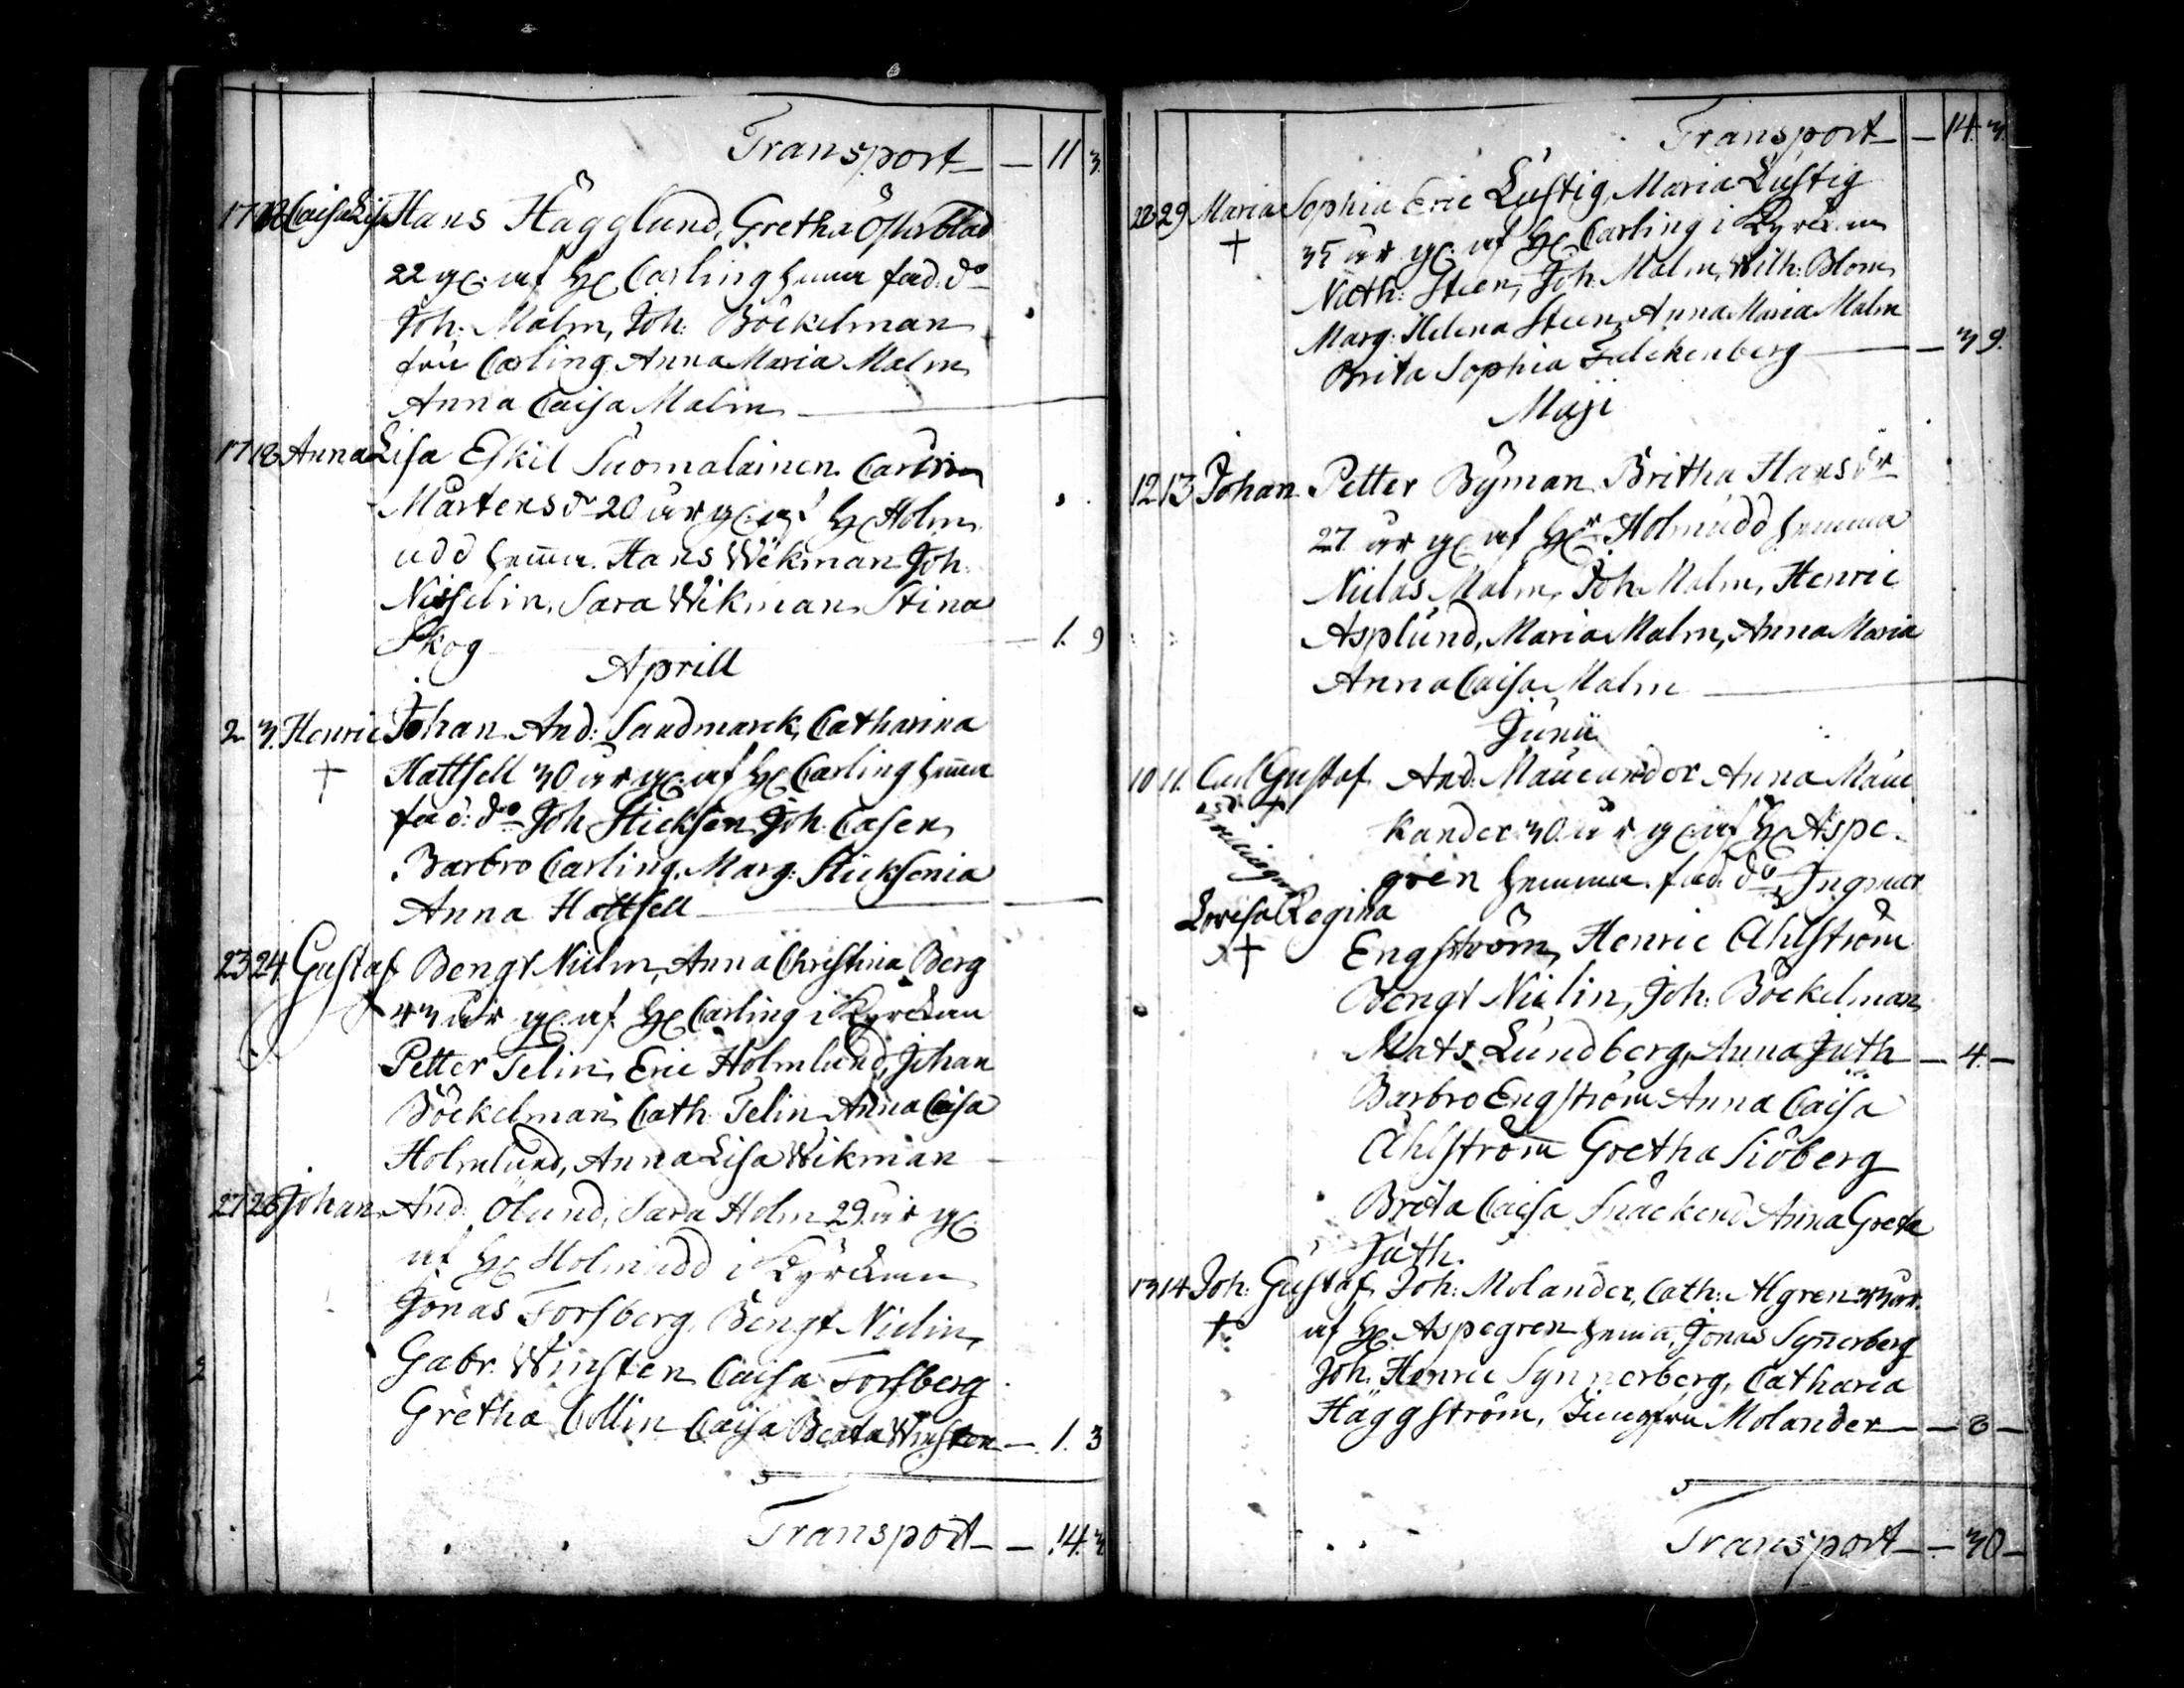 Transport — 11 3.
17 18 Caisa Lisa Hans Hägglund, Gretha Österblad
22 gl: af Hr Carling hemma fad: do
Joh: Malm, Joh: Böckelman
fru Carling Anna Maria Malm
Anna Caisa Malm
17 18 Anna Lisa Eskil Suomalainen Carin
Mårtens dr 20 år gl: af Hr Holm
udd hemma. Hans Wekman Joh:
Nisselin, Sara Wikman Stina
Skog — 1. 9
Aprill
2 3. Henric Johan And: Sandmarck, Catharina
+ Hattsell 30 år gl: af Hr Carling hemma
fad: do Joh Sticksen, Joh: Casen
Barbro Carling, Marg: Sticksenia
Anna Hattsell
23 24 Gustaf Bengt Nielin, Anna Christina Berg
43 år gl: af Hr Carling i Kyrckan
Petter Telin, Eric Holmlund, Johan
Böckelman Cath: Telin Anna Caisa
Holmlund, Anna Lisa Wikman
27 28 Johan And: Ölund, Sara Holm 29 år gl:
af Hr Holmudd i Kyrckan
Jonas Forsberg, Bengt Nielin,
Gabr. Winsten Caisa Forsberg
Gretha Collin Caisa Beata Winsten — 1. 3
Transport — 14. 3
Transport — 14. 3.
28 29 Maria Sophia Eric Lustig, Maria Lustig
+ 35 år gl: af Hr Carling i Kyrckan
Nath: Steen, Joh: Malm, Wilh: Blom
Marg: Helena Steen, Anna Maria Malm
Brita Sophia Falckenberg — 3 9.
Maji
12 13 Johan Petter Byman Britha Hans dr
27 år gl: af Hr Holmudd hemma
Niclas Malm, Joh: Malm, Henric
Asplund, Maria Malm, Anna Maria
Anna Caisa Malm
Junii
10 11. Carl Gustaf And: Maucander Anna Mau
kander 30 år gl: af Hr Aspe
gren hemma. fad: do Ingmar
Lovisa Regina
+ Engström, Henric Ahlström
Bengt Nielin, Joh: Böckelman
Mats Lundberg, Anna Juth — 4. —
Barbro Engström Anna Caisa
Ahlström Gretha Siöberg
Brita Caisa Anna Greta
Juth.
13 14 Joh: Gustaf Joh: Molander, Cath: Algren 33 år.
+ af Hr Aspegren hemma, Jonas Synerberg
Joh. Henric Synnerberg, Catharia
Häggström, Jungfru Molander — 8 —
Transport — 30 —